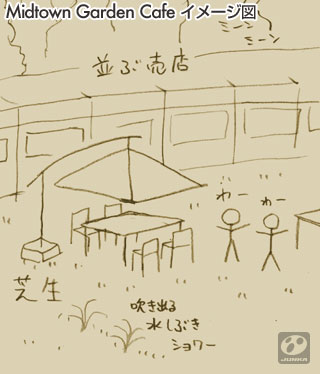 Midtown Garden Cafe イメージ図
ミーン
ミーン
並ぶ売店
わー
わー
芝生
吹き出る
水しぶき
ショワー
JUNKA